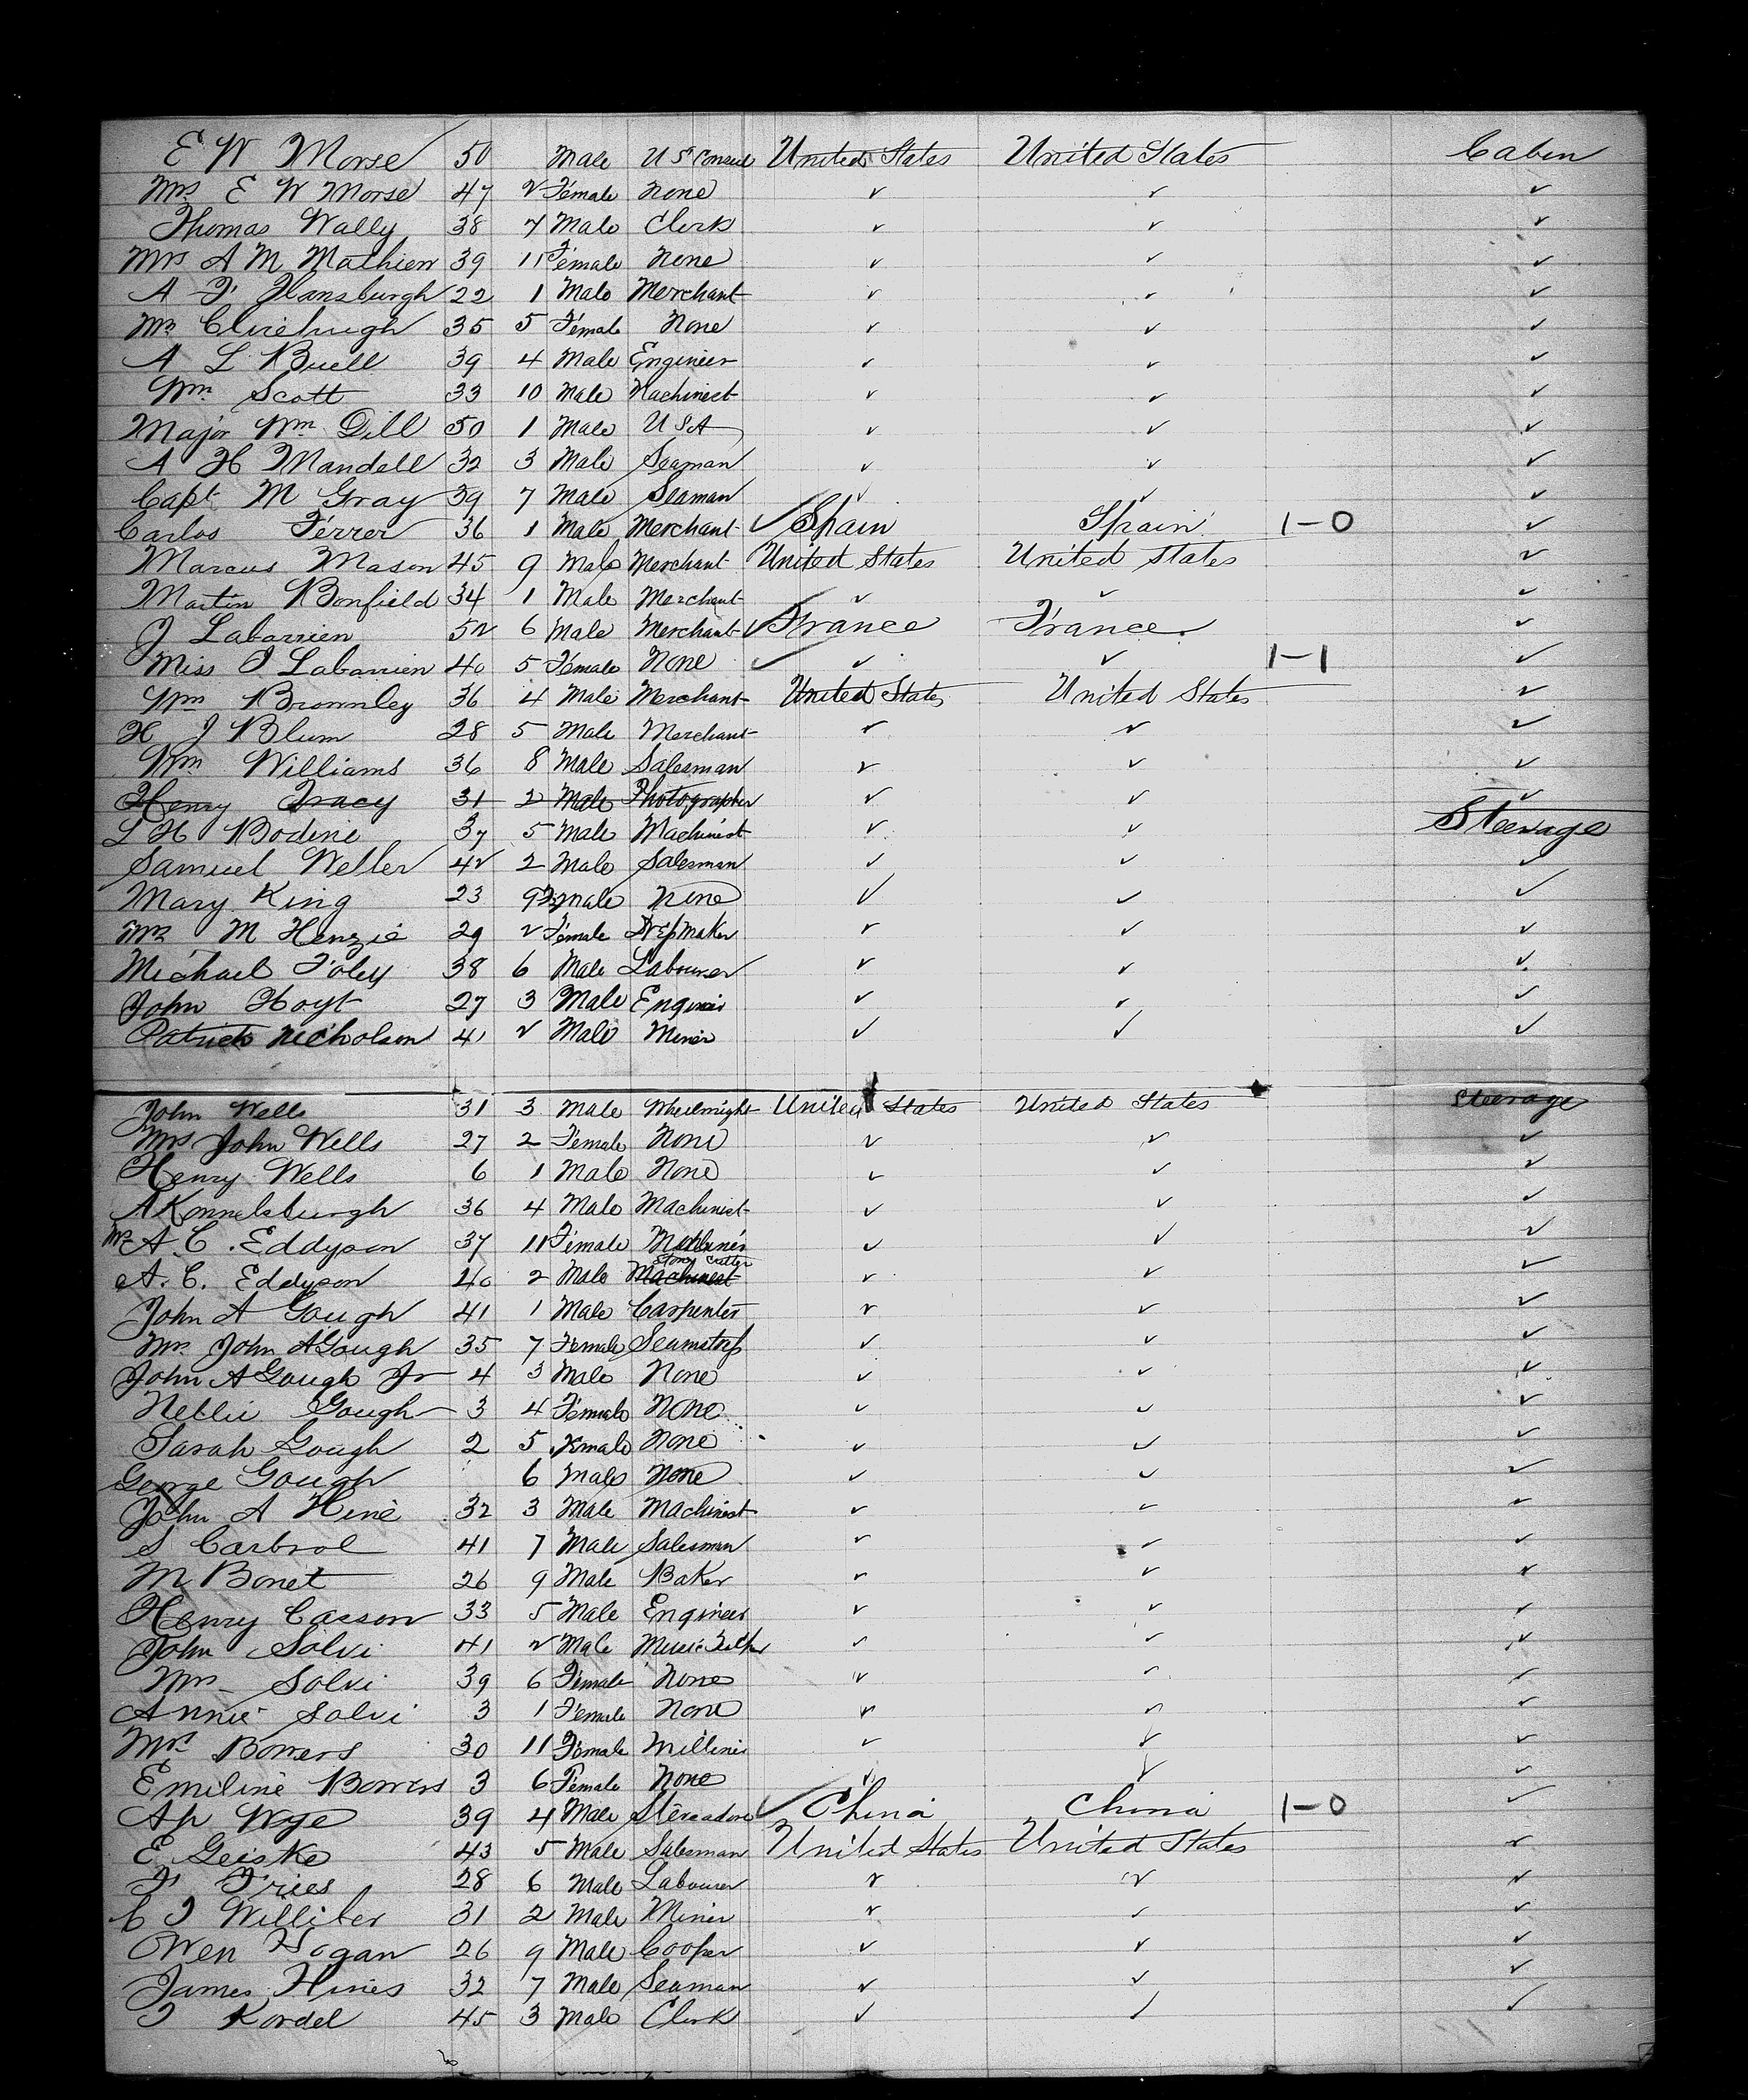 E W Morse 50 Male U S Consul United States United States Cabin
Mrs E W Morse 47 2 Female None ✓ ✓ ✓
Thomas Wally 38 7 Male Clerk ✓ ✓ ✓
Mrs A M Mathien 39 11 Female None ✓ ✓ ✓
A F Hansburgh 22 1 Male Merchant ✓ ✓ ✓
Mrs 35 5 Female None ✓ ✓ ✓
A L Buell 39 4 Male Engineer ✓ ✓ ✓
Wm Scott 33 10 Male Machinist ✓ ✓ ✓
Major Wm Dill 50 1 Male U S A ✓ ✓ ✓
A H Mandell 32 3 Male Seaman ✓ ✓ ✓
Capt M Gray 39 7 Male Seaman ✓ ✓ ✓
Carlos Ferrer 36 1 Male Merchant ✓ Spain Spain 1-0 ✓
Marcus Mason 45 9 Male Merchant United States United States ✓
Martin Bonfield 34 1 Male Merchant ✓ ✓ ✓
J Labarrien 52 6 Male Merchant ✓ France France ✓
Miss J Labarrien 40 5 Female None ✓ ✓ ✓ 1-1 ✓
Wm Brownley 36 4 Male Merchant United States United States ✓
H J Blum 28 5 Male Merchant ✓ ✓ ✓
Wm Williams 36 8 Male Salesman ✓ ✓ ✓
Henry Tracy 31 2 Male Photographer ✓ ✓ ✓
L H Bodine 37 5 Male Machinist ✓ ✓ Steerage
Samuel Weller 42 2 Male Salesman ✓ ✓ ✓
Mary King 23 9 Female None ✓ ✓ ✓
Mrs M Henzie 29 2 Female ✓ ✓ ✓
Michael Foley 38 6 Male Labourer ✓ ✓ ✓
John Hoyt 27 3 Male Engineer ✓ ✓ ✓
Patrick Nicholson 41 2 Male Miner ✓ ✓ ✓
John Wells 31 3 Male Wheelwright United States United States Steerage
Mrs John Wells 27 2 Female None ✓ ✓ ✓
Henry Wells 6 1 Male None ✓ ✓ ✓
A Konnelsburgh 36 4 Male Machinist ✓ ✓ ✓
Mrs A. C. Eddyson 37 11 Female ✓ ✓ ✓
Stone Cutter
A. C. Eddyson 40 2 Male Machinist ✓ ✓ ✓
John A Gough 41 1 Male Carpenter ✓ ✓ ✓
Mrs John A Gough 35 7 Female Seamstress ✓ ✓ ✓
John A Gough Jr 4 3 Male None ✓ ✓ ✓
Nellie Gough 3 4 Female None ✓ ✓ ✓
Sarah Gough 2 5 Female None ✓ ✓ ✓
George Gough 6 Male None ✓ ✓ ✓
John A Hine 32 3 Male Machinist ✓ ✓ ✓
S Carbrol 41 7 Male Salesman ✓ ✓ ✓
M Bonet 26 9 Male Baker ✓ ✓ ✓
Henry Casson 33 5 Male Engineer ✓ ✓ ✓
John Solvi 41 2 Male Music ✓ ✓ ✓
Mrs Solvi 39 6 Female None ✓ ✓ ✓
Annie Solvi 3 1 Female None ✓ ✓ ✓
Mrs Bowers 30 11 Female Milliner ✓ ✓ ✓
Emiline Bowers 3 6 Female None ✓ ✓ ✓
Ah Wye 39 4 Male Stevadore ✓ China China 1-0 ✓
E Geiske 43 5 Male Salesman United States United States ✓
F Fries 28 6 Male Labourer ✓ ✓ ✓
C J Williber 31 2 Male Miner ✓ ✓ ✓
Owen Hogan 26 9 Male Cooper ✓ ✓ ✓
James Hines 32 7 Male Seaman ✓ ✓ ✓
J Kordel 45 3 Male Clerk ✓ ✓ ✓